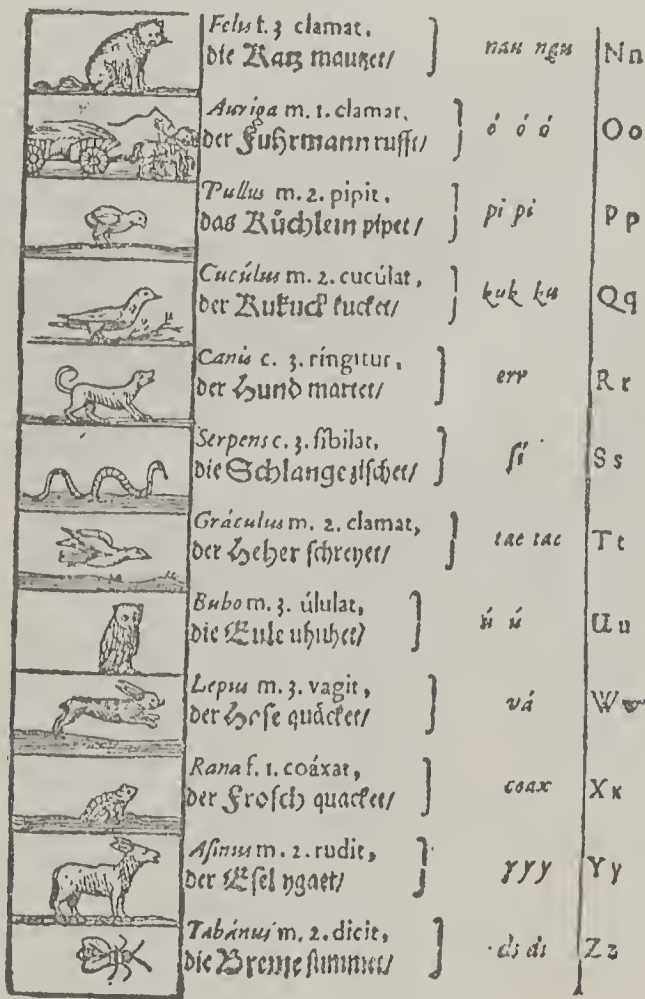 Felis f. 3 clamat,
die Katz mautzet/ } nau ngu Nn
Auriga m. 1. clamat,
der Fuhrmann rufft/ } ó ó ó Oo
Pullus m. 2. pipit,
das Küchlein pipet/ } pi pi Pp
Cucúlus m. 2. cucúlat,
der Kukuck kucket/ } kuk ku Qq
Canis c. 3. ringitur,
der Hund marret/ } err Rr
Serpens c. 3. sibilat,
die Schlange zischet/ } si Ss
Gráculus m. 2. clamat,
der Heher schreyet/ } tac tac Tt
Bubo m. 3. úlulat,
die Eule uhuhet/ } ú ú Uu
Lepus m. 3. vagit,
der Hase quäcket/ } vá Ww
Rana f. 1. coáxat,
der Frosch quacket/ } coax Xx
Asinus m. 2. rudit,
der Esel ygaet/ } yyy Yy
Tabánus m. 2. dicit,
die Breme summet/ } ds ds Zz